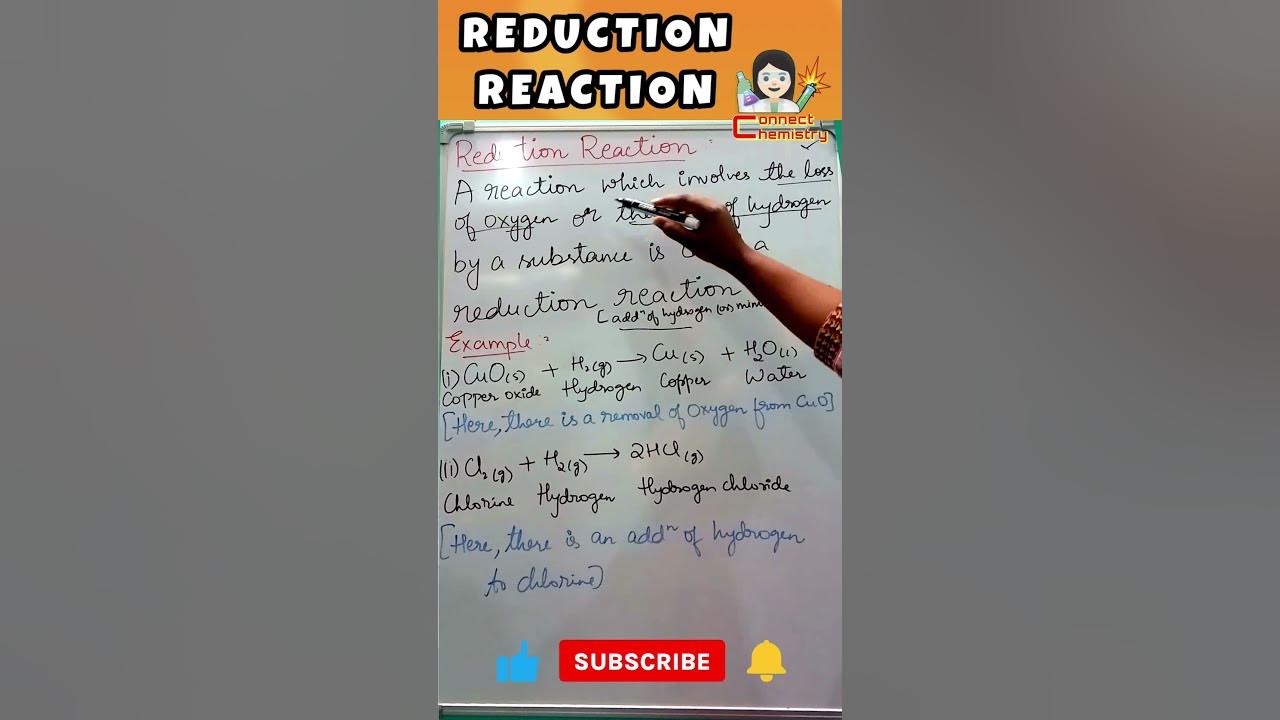 REDUCTION
REACTION
Connect
Chemistry
Reduction Reaction :
A reaction which involves the loss
of oxygen or of hydrogen
by a substance is a
reduction reaction
[addⁿ of hydrogen (or)
Example :
(i) CuO(s) + H₂(g) → Cu(s) + H₂O(l)
Copper oxide Hydrogen Copper Water
[Here, there is a removal of Oxygen from CuO]
(ii) Cl₂(g) + H₂(g) → 2HCl(g)
Chlorine Hydrogen Hydrogen chloride
[Here, there is an addⁿ of hydrogen
to chlorine)
SUBSCRIBE